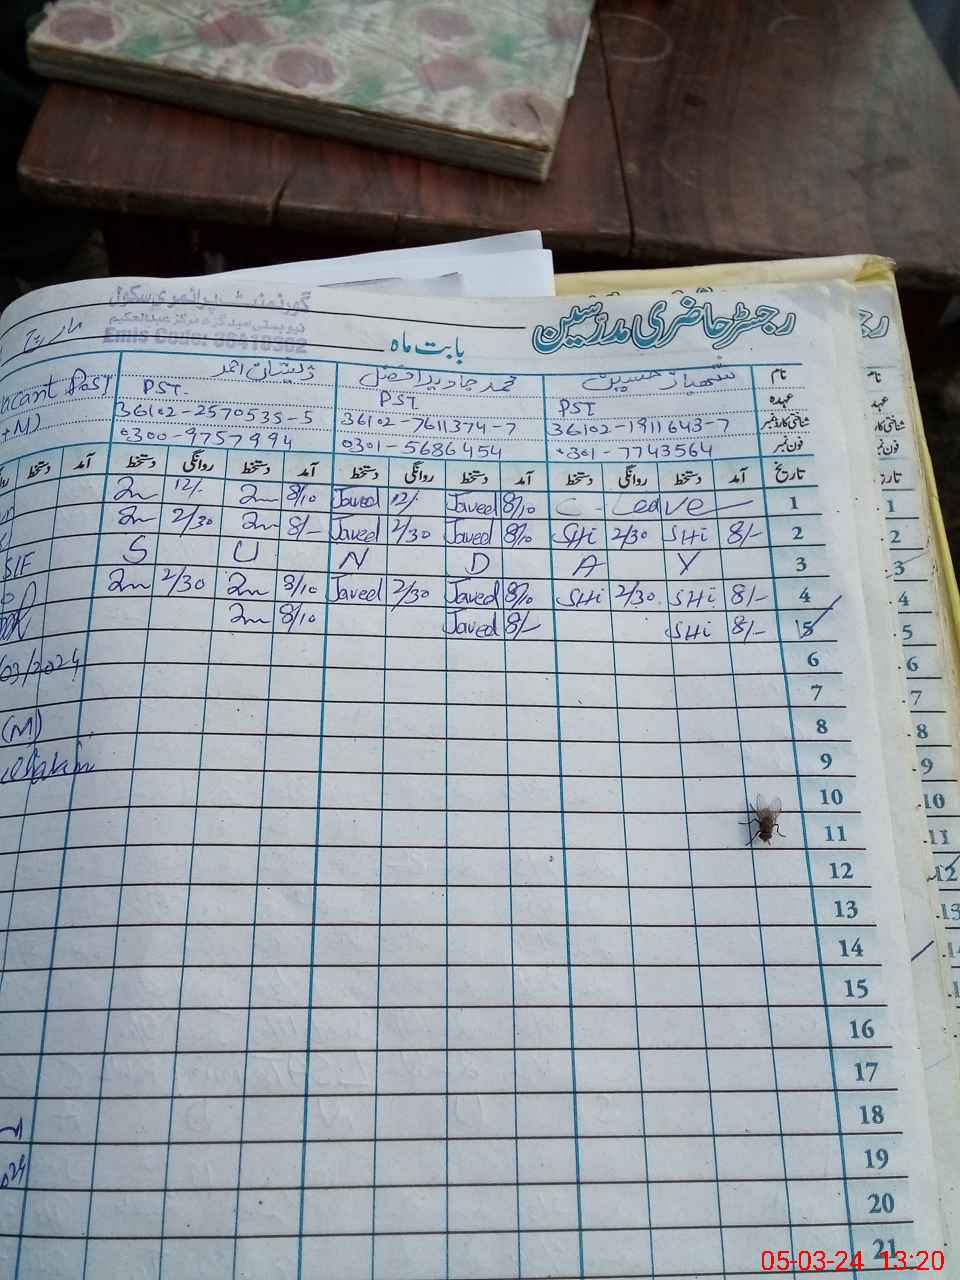 رجسٹر حاضری مدرسین
بابت ماہ
مارچ
گورنمنٹ پرائمری سکول
نیو بستی امیدگڑھ مرکز عبدالحکیم
Emis Code: 36410362
نام شهباز حسین محمد جاوید افضل ذیشان احمد
عہدہ PST PST PST. Vacant Post
شناختی کارڈ نمبر 36102-1911643-7 36102-7611374-7 36102-2570535-5
فون نمبر 0301-7743564 0301-5686454 0300-9757994
تاریخ آمد دستخط روانگی دستخط آمد دستخط روانگی دستخط آمد دستخط روانگی دستخط آمد دستخط
1 C. Leave 8/10 Javeed 12/- Javeed 8/10 12/-
2 8/- SHi 2/30 SHi 8/10 Javeed 2/30 Javeed 8/- 2/30
3 S U N D A Y
4 8/- SHi 2/30 SHi 8/10 Javeed 2/30 Javeed 8/10 2/30
5 8/- SHi 8/- Javeed 8/10
6
03/2024
7
8
(M)
9
10
11
12
13
14
15
16
17
18
19
20
21
نام
عہدہ
تاریخ
1
2
3
4
5
6
7
8
9
10
11
12
13
05-03-24 13:20